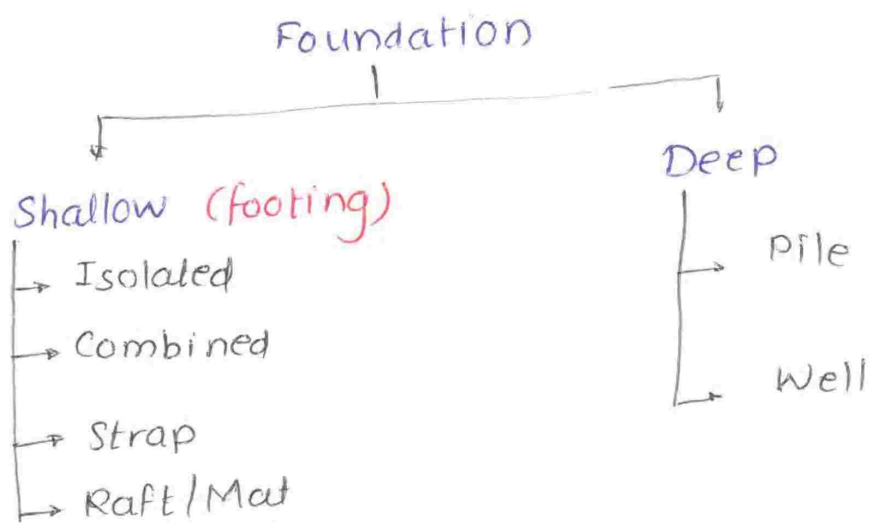 Foundation
Shallow (footing)
Isolated
Combined
Strap
Raft/Mat
Deep
Pile
Well